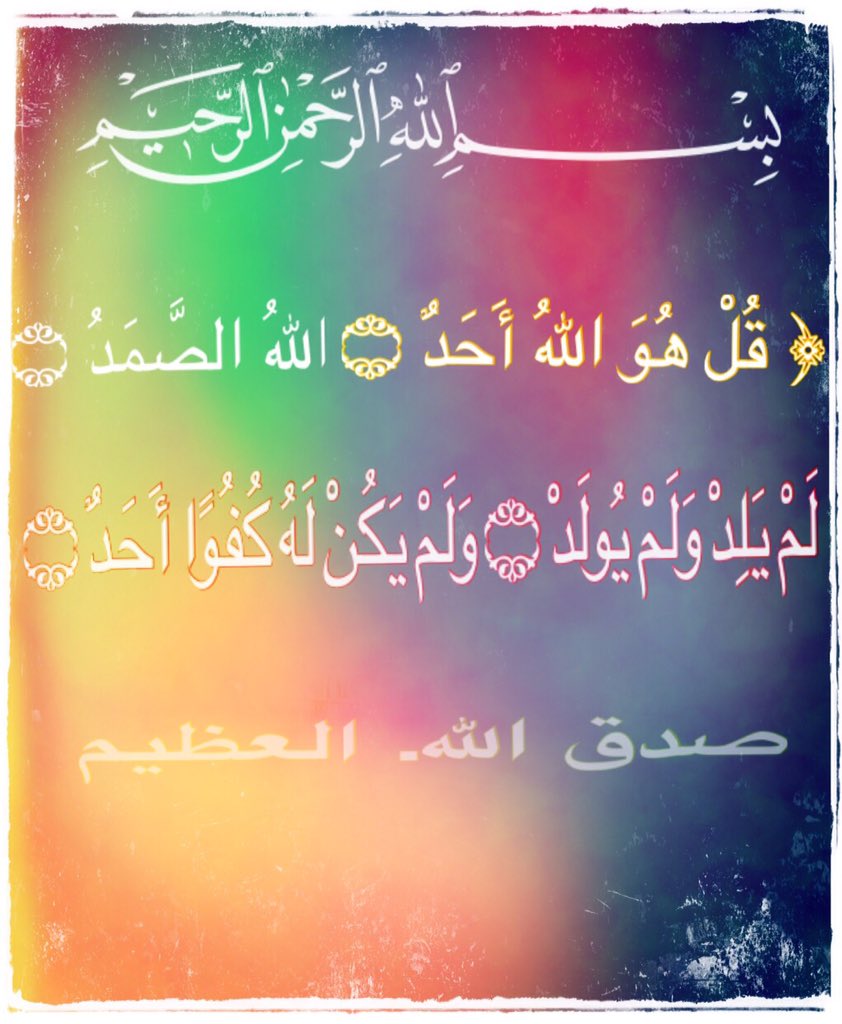 بِسْمِ ٱللَّهِ ٱلرَّحْمَٰنِ ٱلرَّحِيمِ
﴿ قُلْ هُوَ اللهُ أَحَدٌ ۝ اللهُ الصَّمَدُ ۝
لَمْ يَلِدْ وَلَمْ يُولَدْ ۝ وَلَمْ يَكُنْ لَهُ كُفُوًا أَحَدٌ ۝
صدق الله. العظيم